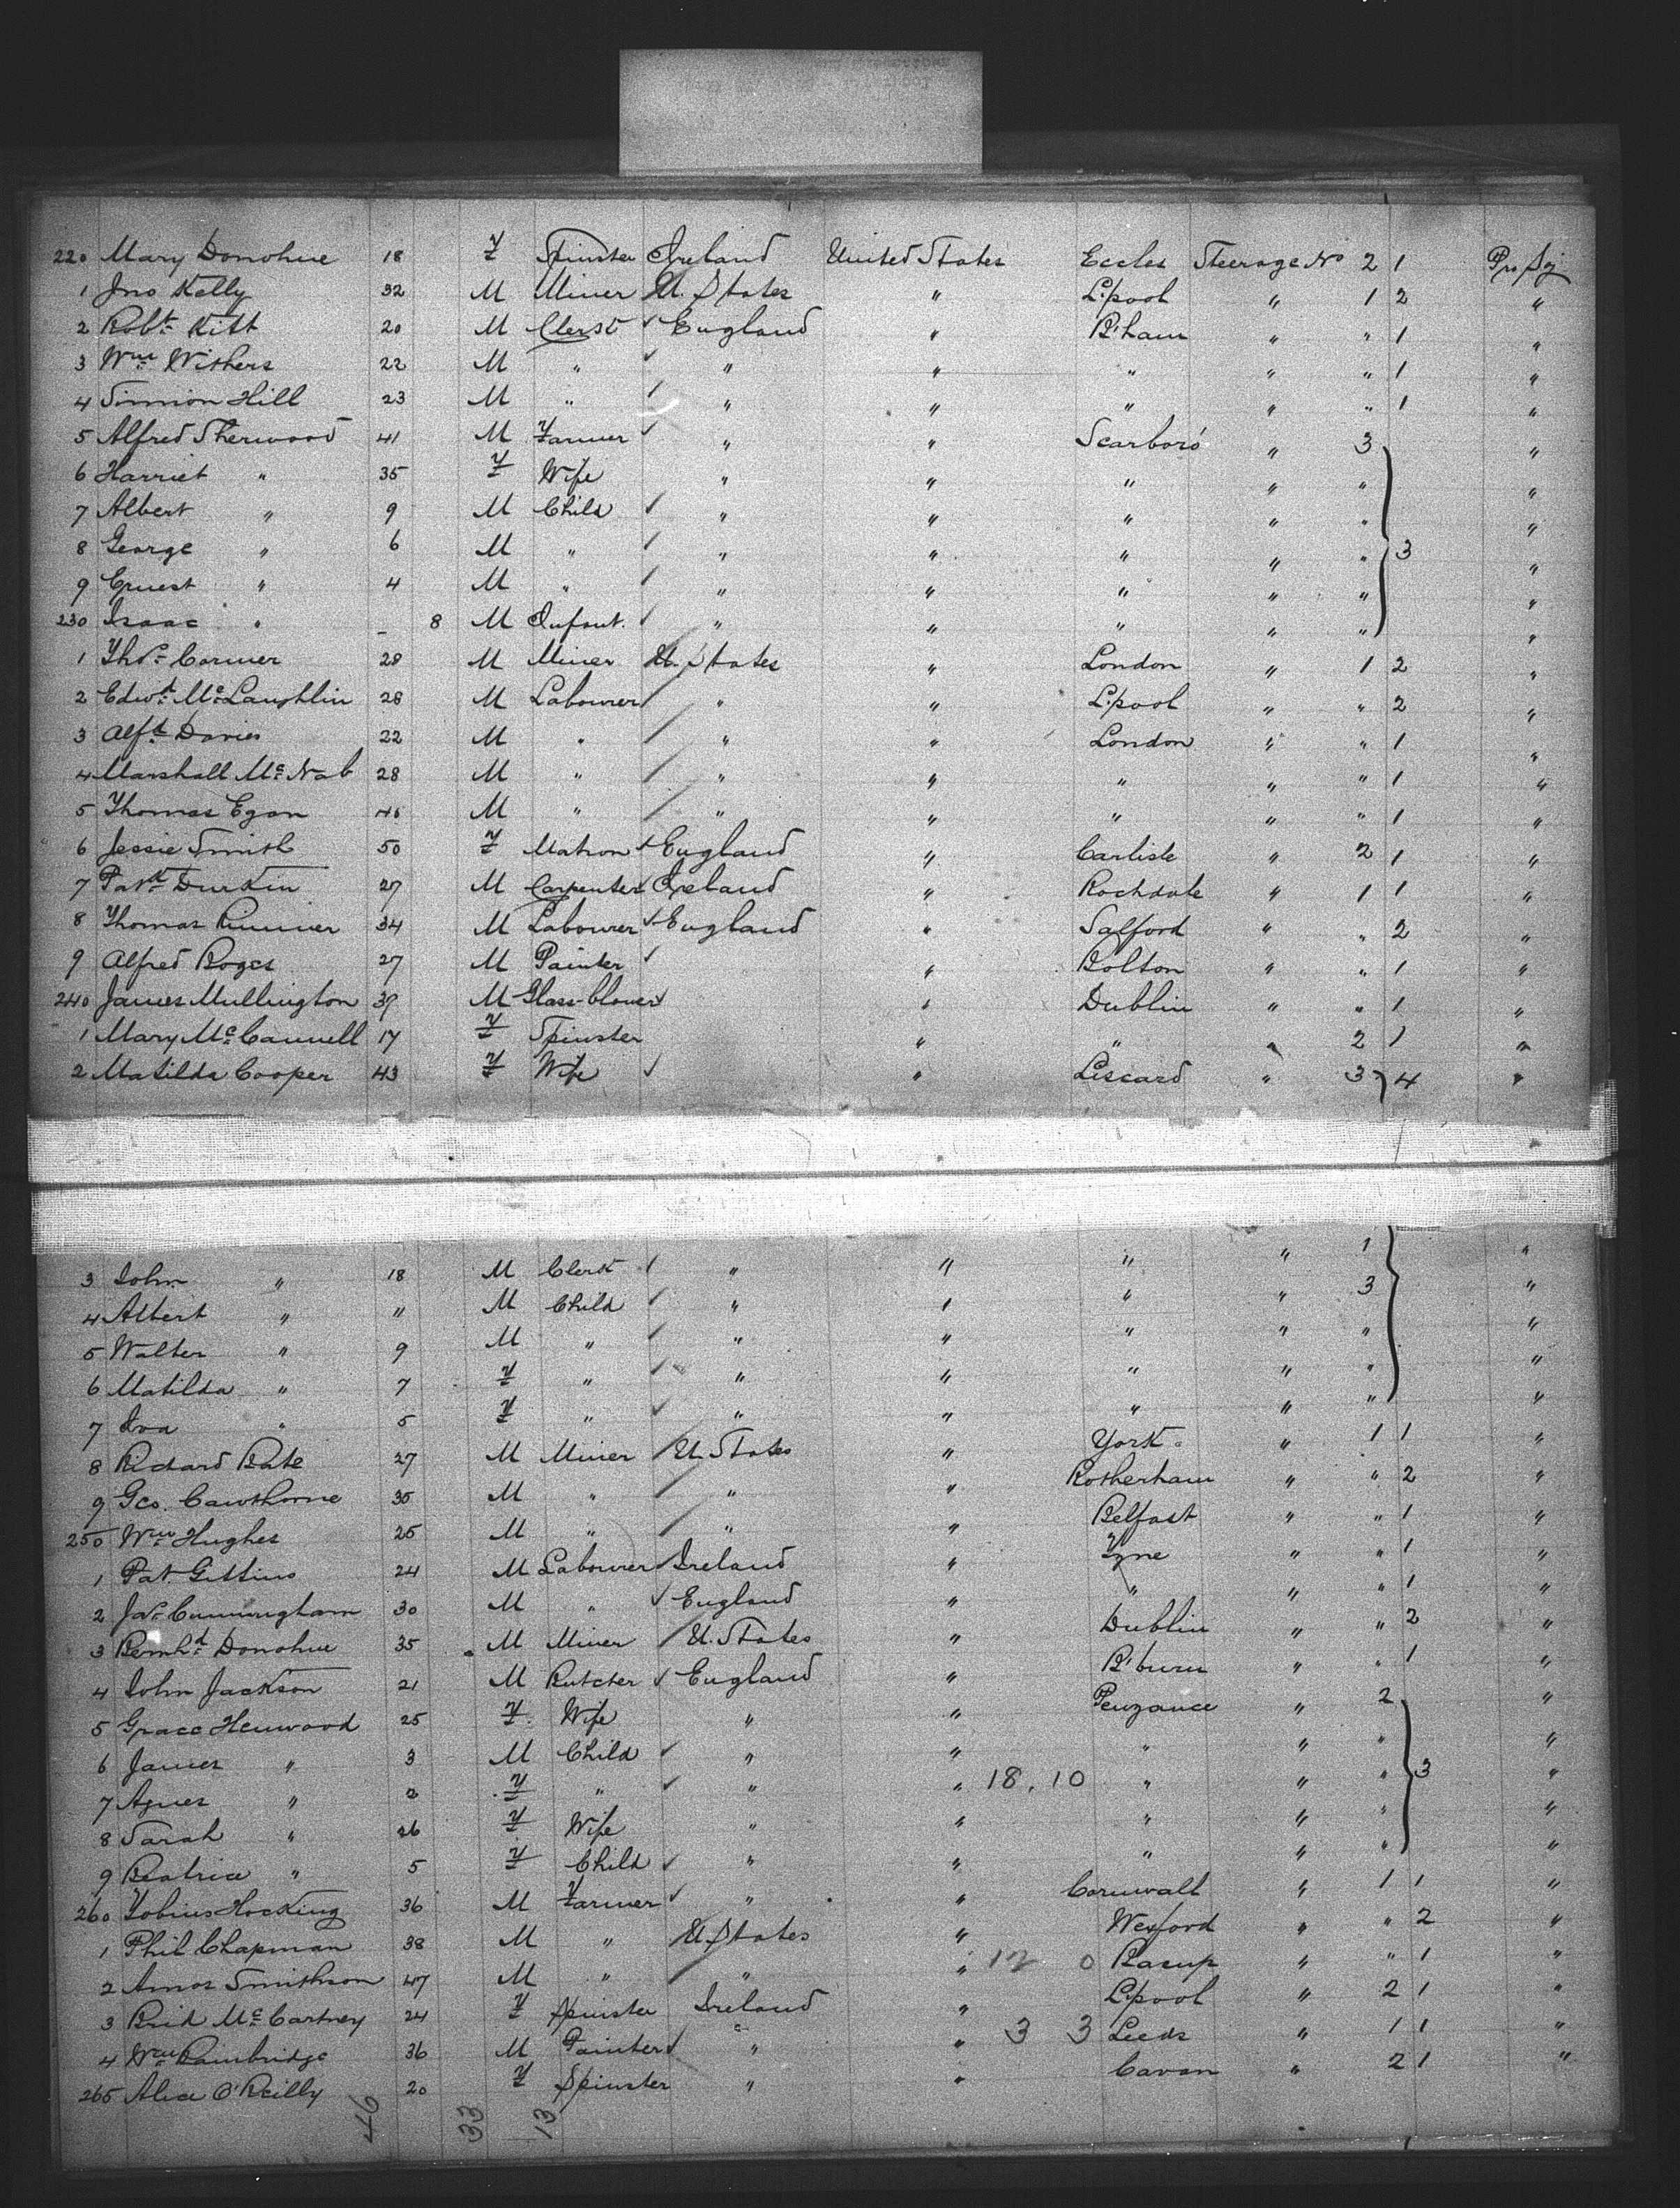 220 Mary Donohue 18 F Spinster Ireland United States Eccles Steerage No 2 1 Pro Sj
1 Jno Kelly 32 M Miner U. States " L'pool " 1 2 "
2 Robt Kitt 20 M Clerk ✓ England " B'ham " " 1 "
3 Wm Withers 22 M " ✓ " " " " " 1 "
4 Simion Hill 23 M " ✓ " " " " " 1 "
5 Alfred Sherwood 41 M Farmer ✓ " " Scarboro' " 3 "
6 Harriet " 35 F Wife " " " " " "
7 Albert " 9 M Child ✓ " " " " " "
8 George " 6 M " ✓ " " " " " 3 "
9 Ernest " 4 M " ✓ " " " " " "
230 Isaac " - 8 M Infant. ✓ " " " " " "
1 Thos Cormer 28 M Miner U. States " London " 1 2 "
2 Edwd McLaughlin 28 M Labourer ✓ " " L'pool " " 2 "
3 Alfd Davies 22 M " ✓ " " London " " 1 "
4 Marshall McNab 28 M " ✓ " " " " " 1 "
5 Thomas Egan 46 M " ✓ " " " " " 1 "
6 Jessie Smith 50 F Matron ✓ England " Carlisle " 2 1 "
7 Patk Durkin 27 M Carpenter ✓ Ireland " Rochdale " 1 1 "
8 Thomas Rimmer 34 M Labourer ✓ England " Salford " " 2 "
9 Alfred Boges 27 M Painter ✓ " Bolton " " 1 "
240 James Mullington 39 M Glass-blower ✓ " Dublin " " 1 "
1 Mary McCannell 17 F Spinster " " " 2 1 "
2 Matilda Cooper 43 F Wife ✓ " Liscard " 3 4 "
3 John " 18 M Clerk ✓ " " " " 1 "
4 Albert " " M Child ✓ " " " " 3 "
5 Walter " 9 M " ✓ " " " " " "
6 Matilda " 7 F " ✓ " " " " " "
7 Iva " 5 F " ✓ " " " " " "
8 Richard Bate 27 M Miner U. States " York " 1 1 "
9 Geo. Cawthorne 35 M " ✓ " " Rotherham " " 2 "
250 Wm Hughes 25 M " ✓ " " Belfast " " 1 "
1 Pat. Gittins 24 M Labourer ✓ Ireland " Tyne " " 1 "
2 Jas Cunningham 30 M " ✓ England " " " " 1 "
3 Bernhd Donohue 35 M Miner U. States " Dublin " " 2 "
4 John Jackson 21 M Butcher ✓ England " B'burn " " 1 "
5 Grace Henwood 25 F Wife " " Penzance " 2 "
6 James " 3 M Child ✓ " " " " " "
7 Agnes " 2 F " ✓ " " 18.10 " " " 3 "
8 Sarah " 26 F Wife " " " " " "
9 Beatrice " 5 F Child ✓ " " " " " "
260 Tobias Hocking 36 M Farmer ✓ " " Cornwall " 1 1 "
1 Phil Chapman 38 M " U. States " Wexford " " 2 "
2 Amos Smithson 47 M " " " 12 0 Bacup " " 1 "
3 Brid McCartney 24 F Spinster Ireland " L'pool " 2 1 "
4 Wm Bambridge 36 M Painter ✓ " " 3 3 Leeds " 1 1 "
265 Alice O'Reilly 20 F Spinster " " Cavan " 2 1 "
46 33 13